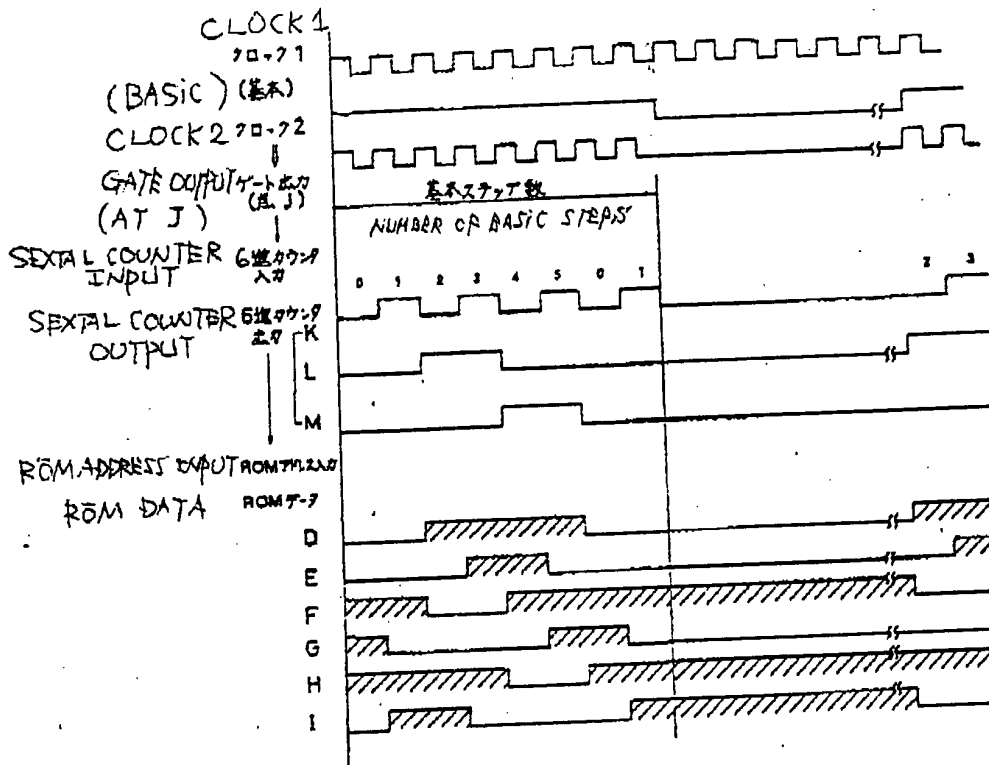 CLOCK 1
クロック1
(BASIC) (基本)
CLOCK 2 クロック2
GATE OUTPUT ゲート出力
(AT J) (点 J)
基本ステップ数
NUMBER OF BASIC STEPS
SEXTAL COUNTER 6進カウンタ
INPUT 入力
0 1 2 3 4 5 0 1 2 3
SEXTAL COUNTER 6進カウンタ
OUTPUT 出力
K
L
M
ROM ADDRESS INPUT ROMアドレス入力
ROM DATA ROMデータ
D
E
F
G
H
I